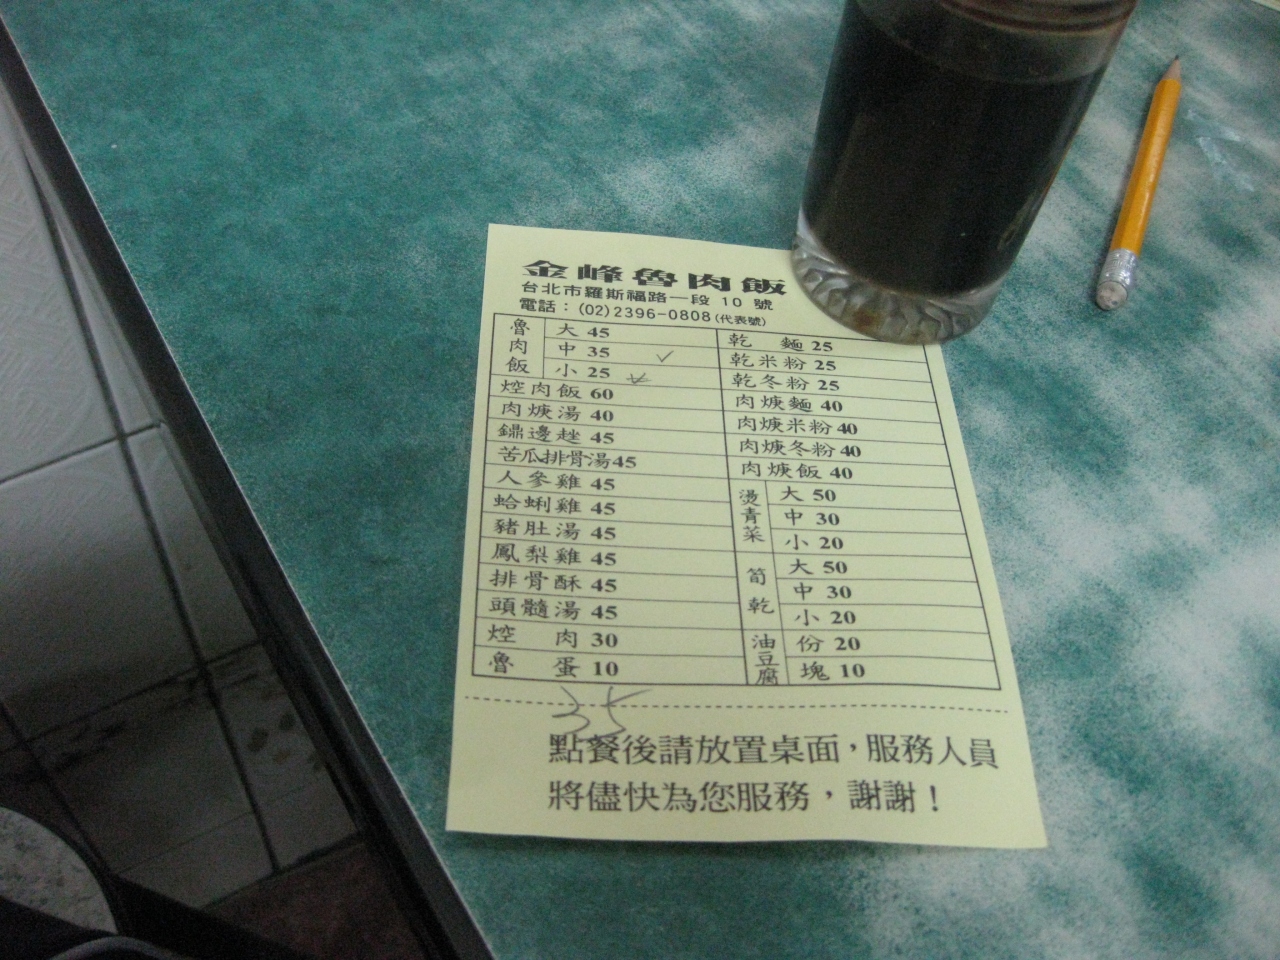 金峰魯肉飯
台北市羅斯福路一段 10 號
電話：(02)2396-0808(代表號)
魯肉飯
大 45
中 35 ✓
小 25
焢肉飯 60
肉焿湯 40
鼎邊趖 45
苦瓜排骨湯45
人參雞 45
蛤蜊雞 45
豬肚湯 45
鳳梨雞 45
排骨酥 45
頭髓湯 45
焢 肉 30
魯 蛋 10
乾 麵 25
乾米粉 25
乾冬粉 25
肉焿麵 40
肉焿米粉40
肉焿冬粉40
肉焿飯 40
燙青菜
大 50
中 30
小 20
筍乾
大 50
中 30
小 20
油豆腐
份 20
塊 10
35
點餐後請放置桌面，服務人員
將儘快為您服務，謝謝！